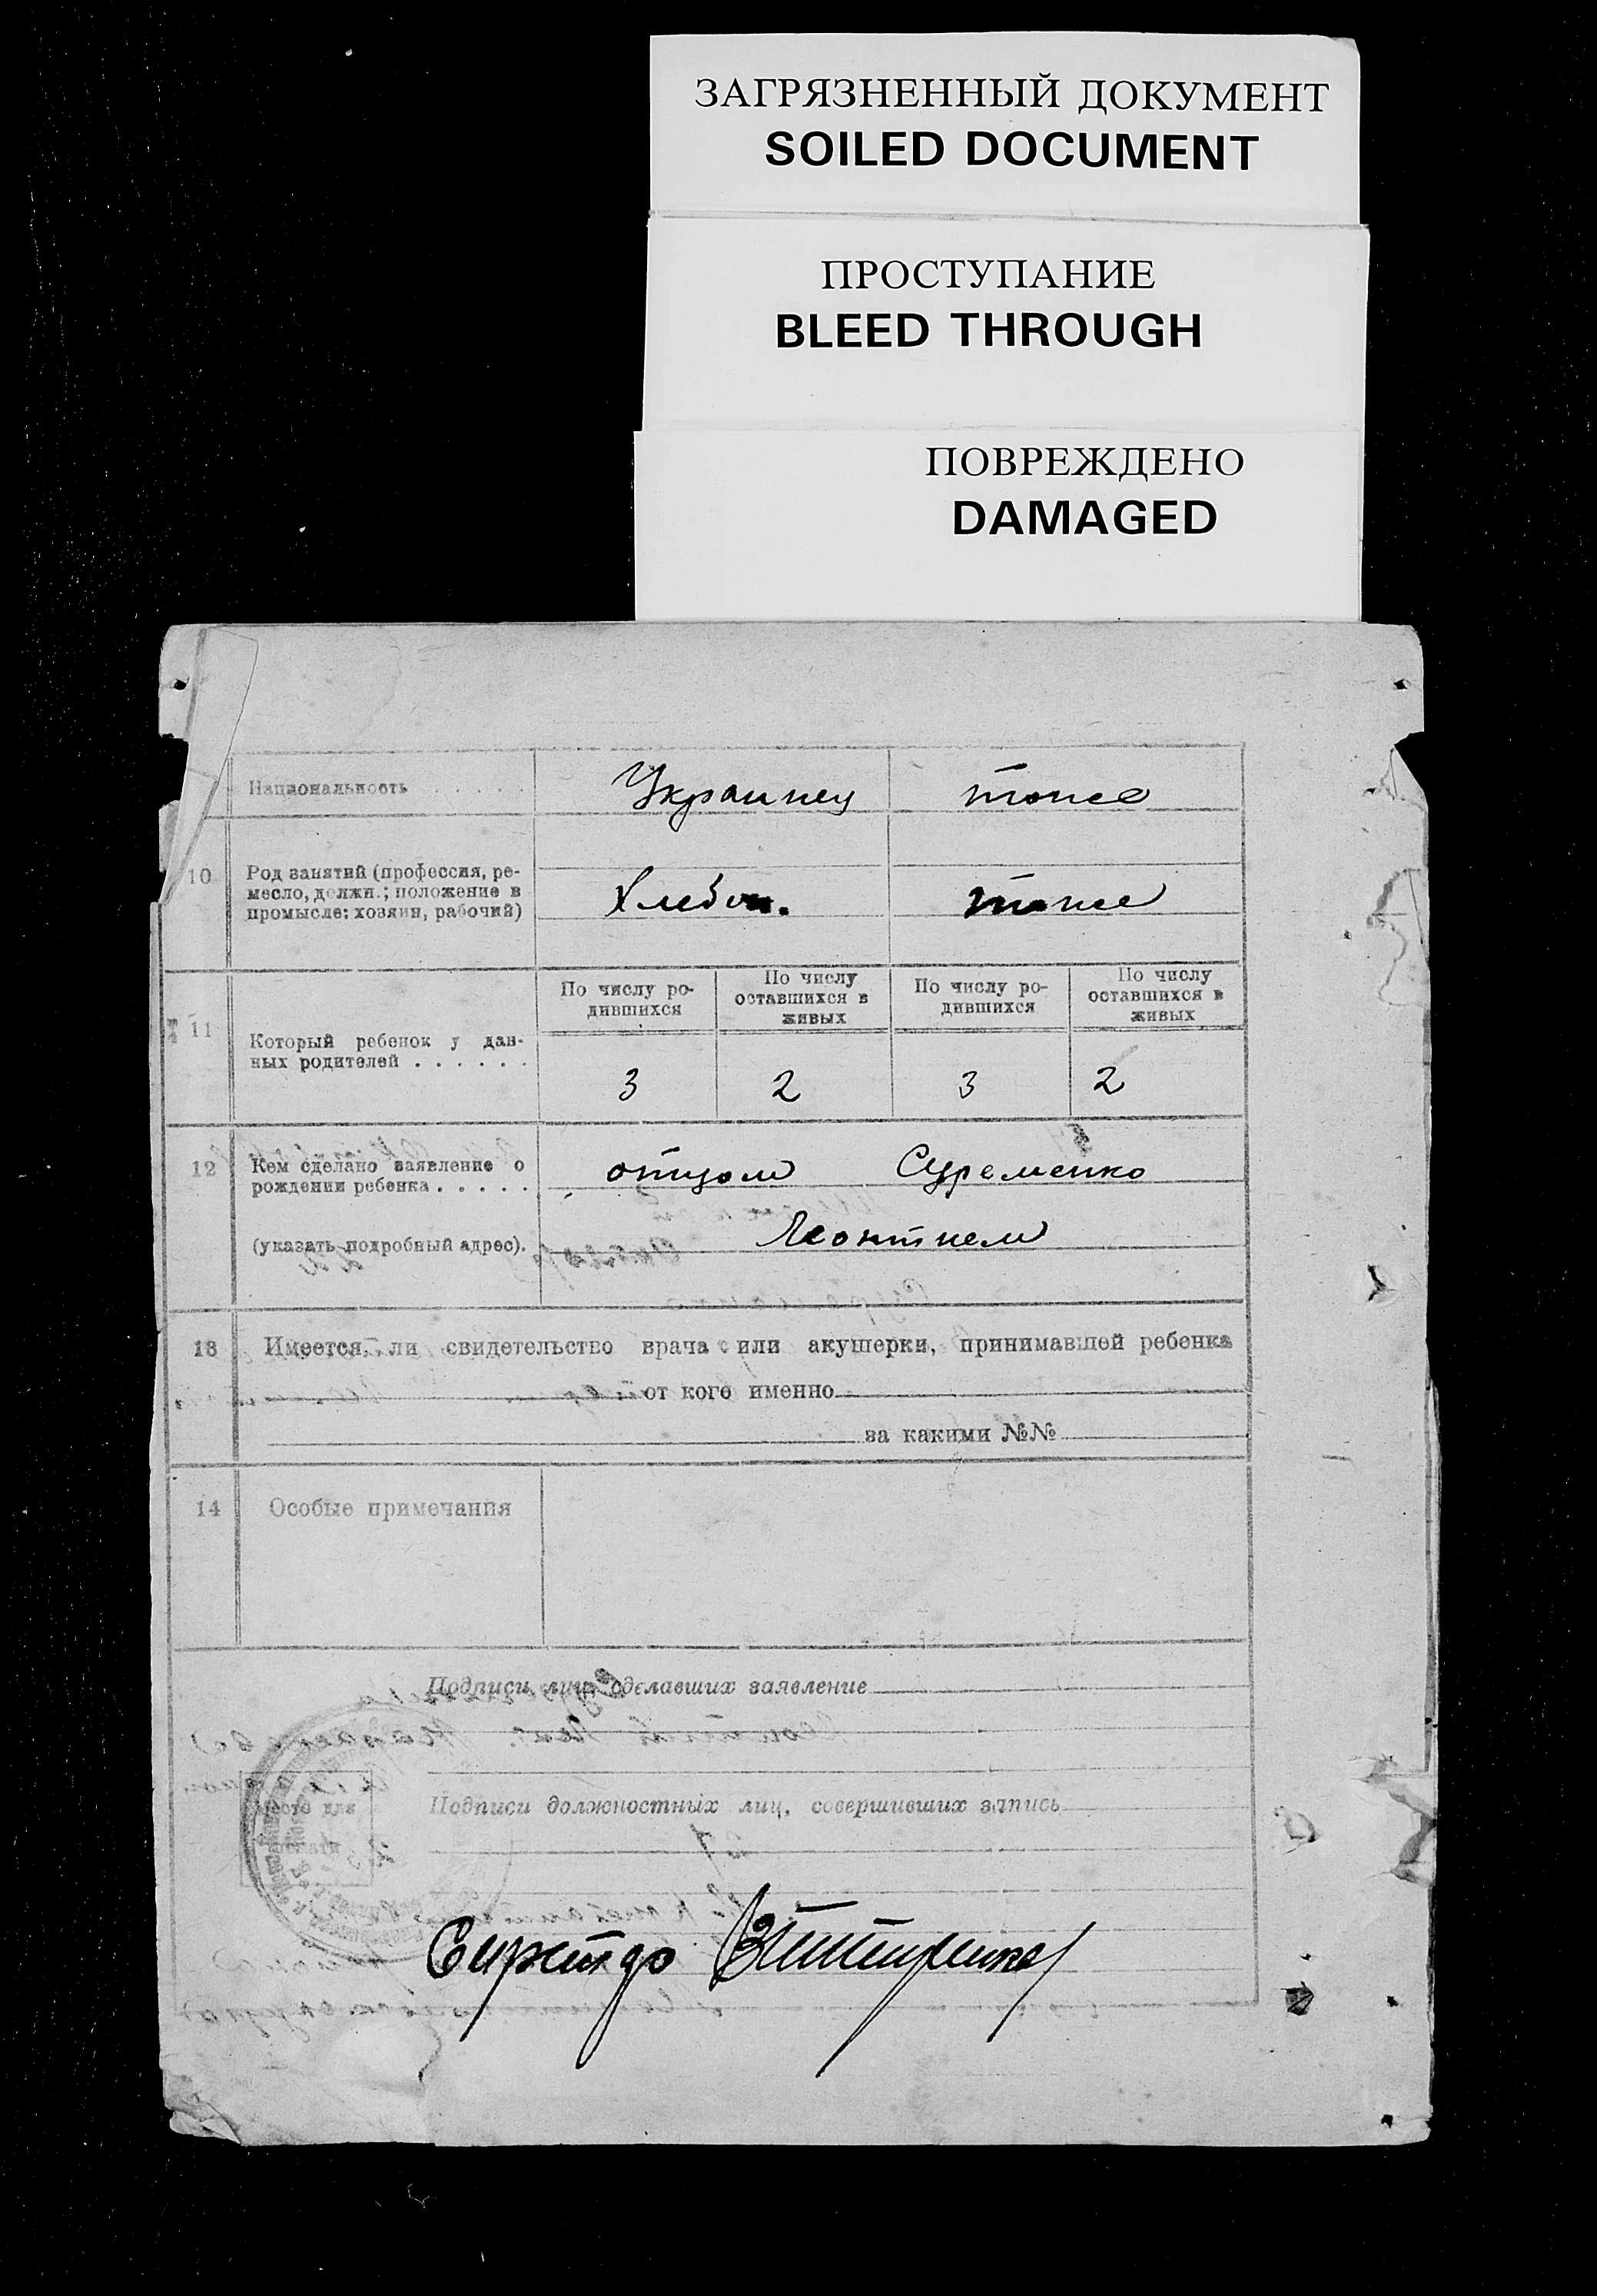 ЗАГРЯЗНЕННЫЙ ДОКУМЕНТ
SOILED DOCUMENT
ПРОСТУПАНИЕ
BLEED THROUGH
ПОВРЕЖДЕНО
DAMAGED
Национальность . . . . . Украинец тоже
10 Род занятий (профессия, ре-
месло, должн.; положение в
промысле: хозяин, рабочий) Хлебоп. тоже
11 Который ребенок у дан-
ных родителей . . . . . .
По числу ро-
дившихся
По числу
оставшихся в
живых
По числу ро-
дившихся
По числу
оставшихся в
живых
3 2 3 2
12 Кем сделано заявление о
рождении ребенка . . . . . отцом Суременко
(указать подробный адрес). Леонтием
13 Имеется ли свидетельство врача или акушерки, принимавшей ребенка
от кого именно
за какими №№
14 Особые примечания
Подписи лиц, сделавших заявление
Место для
печати
Подписи должностных лиц, совершивших запись